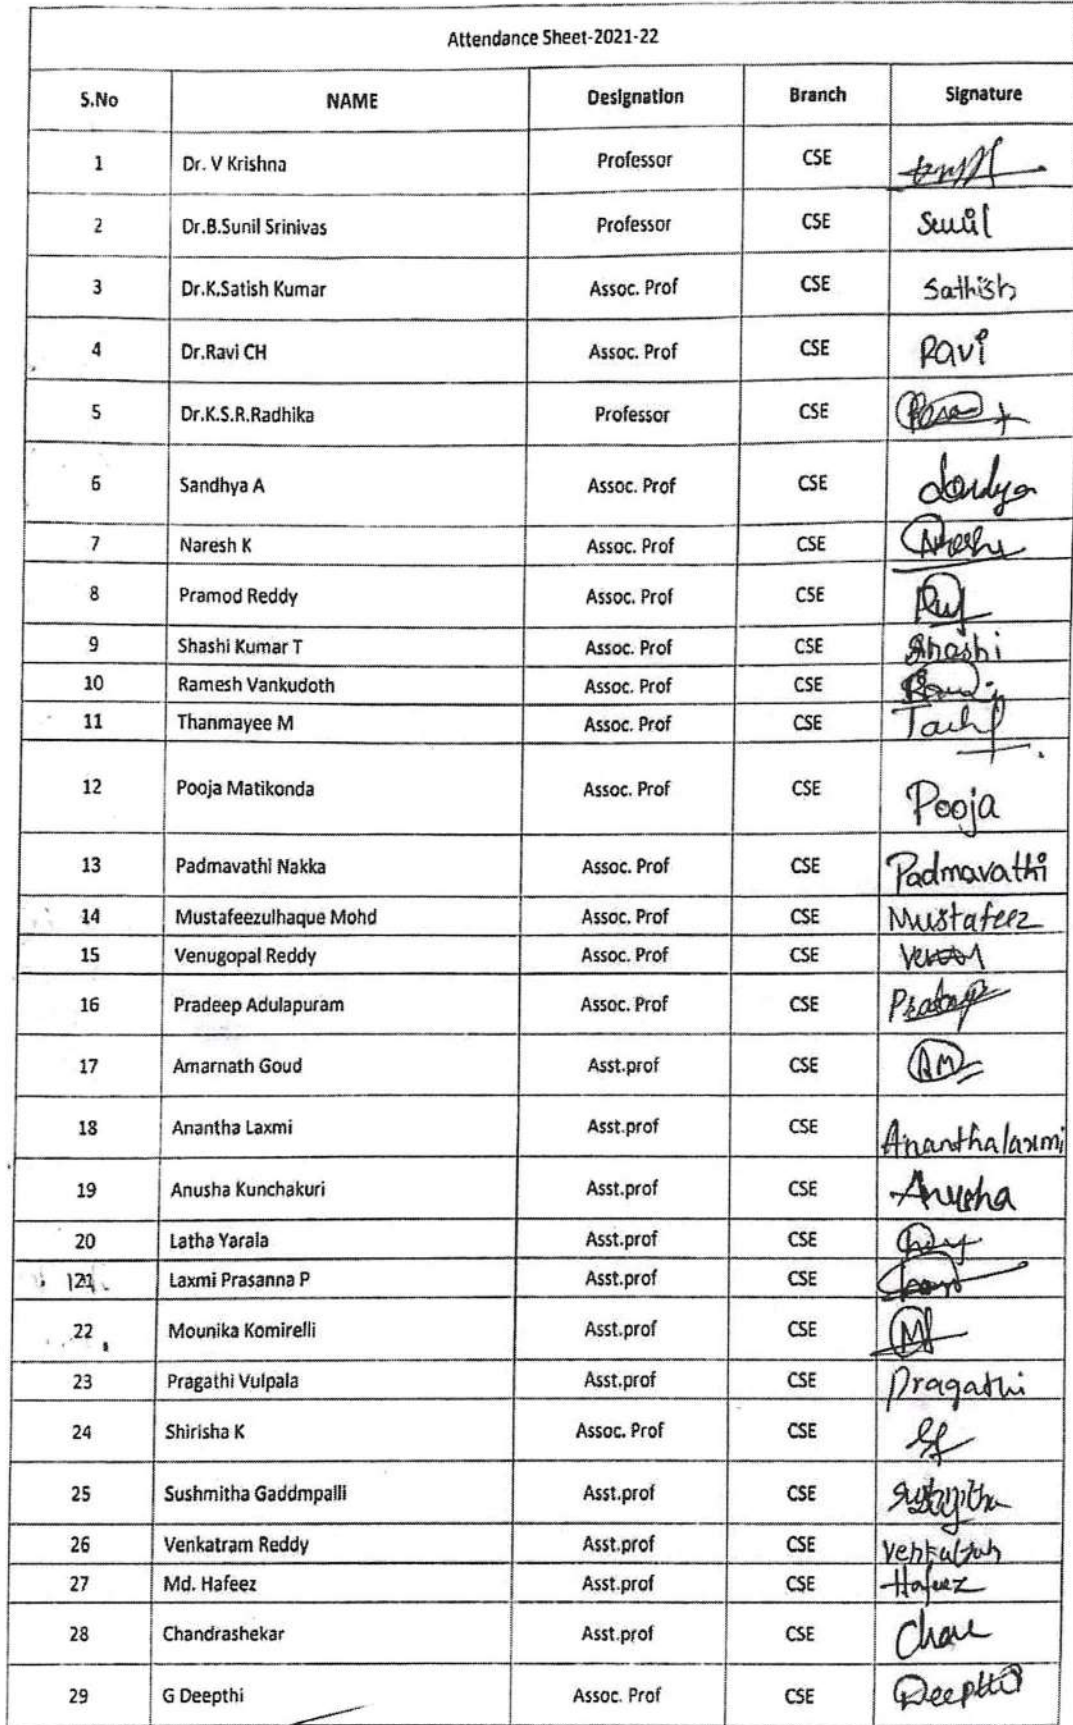 Attendance Sheet-2021-22
S.No NAME Designation Branch Signature
1 Dr. V Krishna Professor CSE
2 Dr.B.Sunil Srinivas Professor CSE Sunil
3 Dr.K.Satish Kumar Assoc. Prof CSE Sathish
4 Dr.Ravi CH Assoc. Prof CSE Ravi
5 Dr.K.S.R.Radhika Professor CSE
6 Sandhya A Assoc. Prof CSE
7 Naresh K Assoc. Prof CSE
8 Pramod Reddy Assoc. Prof CSE
9 Shashi Kumar T Assoc. Prof CSE Shashi
10 Ramesh Vankudoth Assoc. Prof CSE
11 Thanmayee M Assoc. Prof CSE
12 Pooja Matikonda Assoc. Prof CSE Pooja
13 Padmavathi Nakka Assoc. Prof CSE Padmavathi
14 Mustafeezulhaque Mohd Assoc. Prof CSE Mustafeez
15 Venugopal Reddy Assoc. Prof CSE
16 Pradeep Adulapuram Assoc. Prof CSE
17 Amarnath Goud Asst.prof CSE AM
18 Anantha Laxmi Asst.prof CSE Ananthalaxmi
19 Anusha Kunchakuri Asst.prof CSE Anusha
20 Latha Yarala Asst.prof CSE
21 Laxmi Prasanna P Asst.prof CSE
22 Mounika Komirelli Asst.prof CSE
23 Pragathi Vulpala Asst.prof CSE Pragathi
24 Shirisha K Assoc. Prof CSE
25 Sushmitha Gaddmpalli Asst.prof CSE
26 Venkatram Reddy Asst.prof CSE
27 Md. Hafeez Asst.prof CSE Hafeez
28 Chandrashekar Asst.prof CSE
29 G Deepthi Assoc. Prof CSE Deepthi